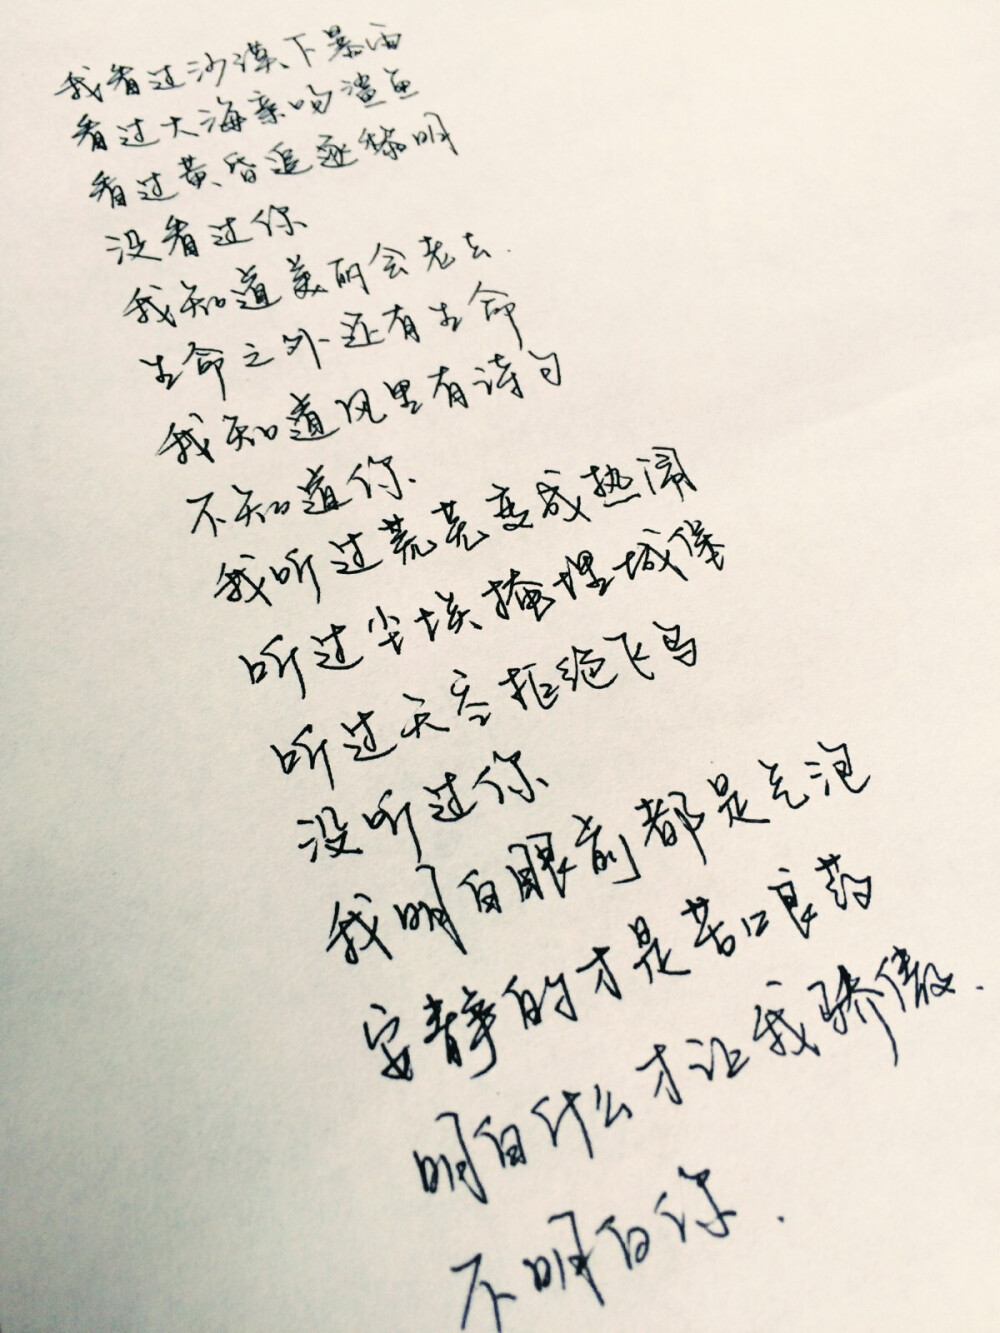 我看过沙漠下暴雨
看过大海亲吻鲨鱼
看过黄昏追逐黎明
没看过你
我知道美丽会老去.
生命之外还有生命
我知道风里有诗句
不知道你.
我听过荒芜变成热闹
听过尘埃掩埋城堡
听过天空拒绝飞鸟
没听过你
我明白眼前都是气泡
安静的才是苦口良药
明白什么才让我骄傲.
不明白你.